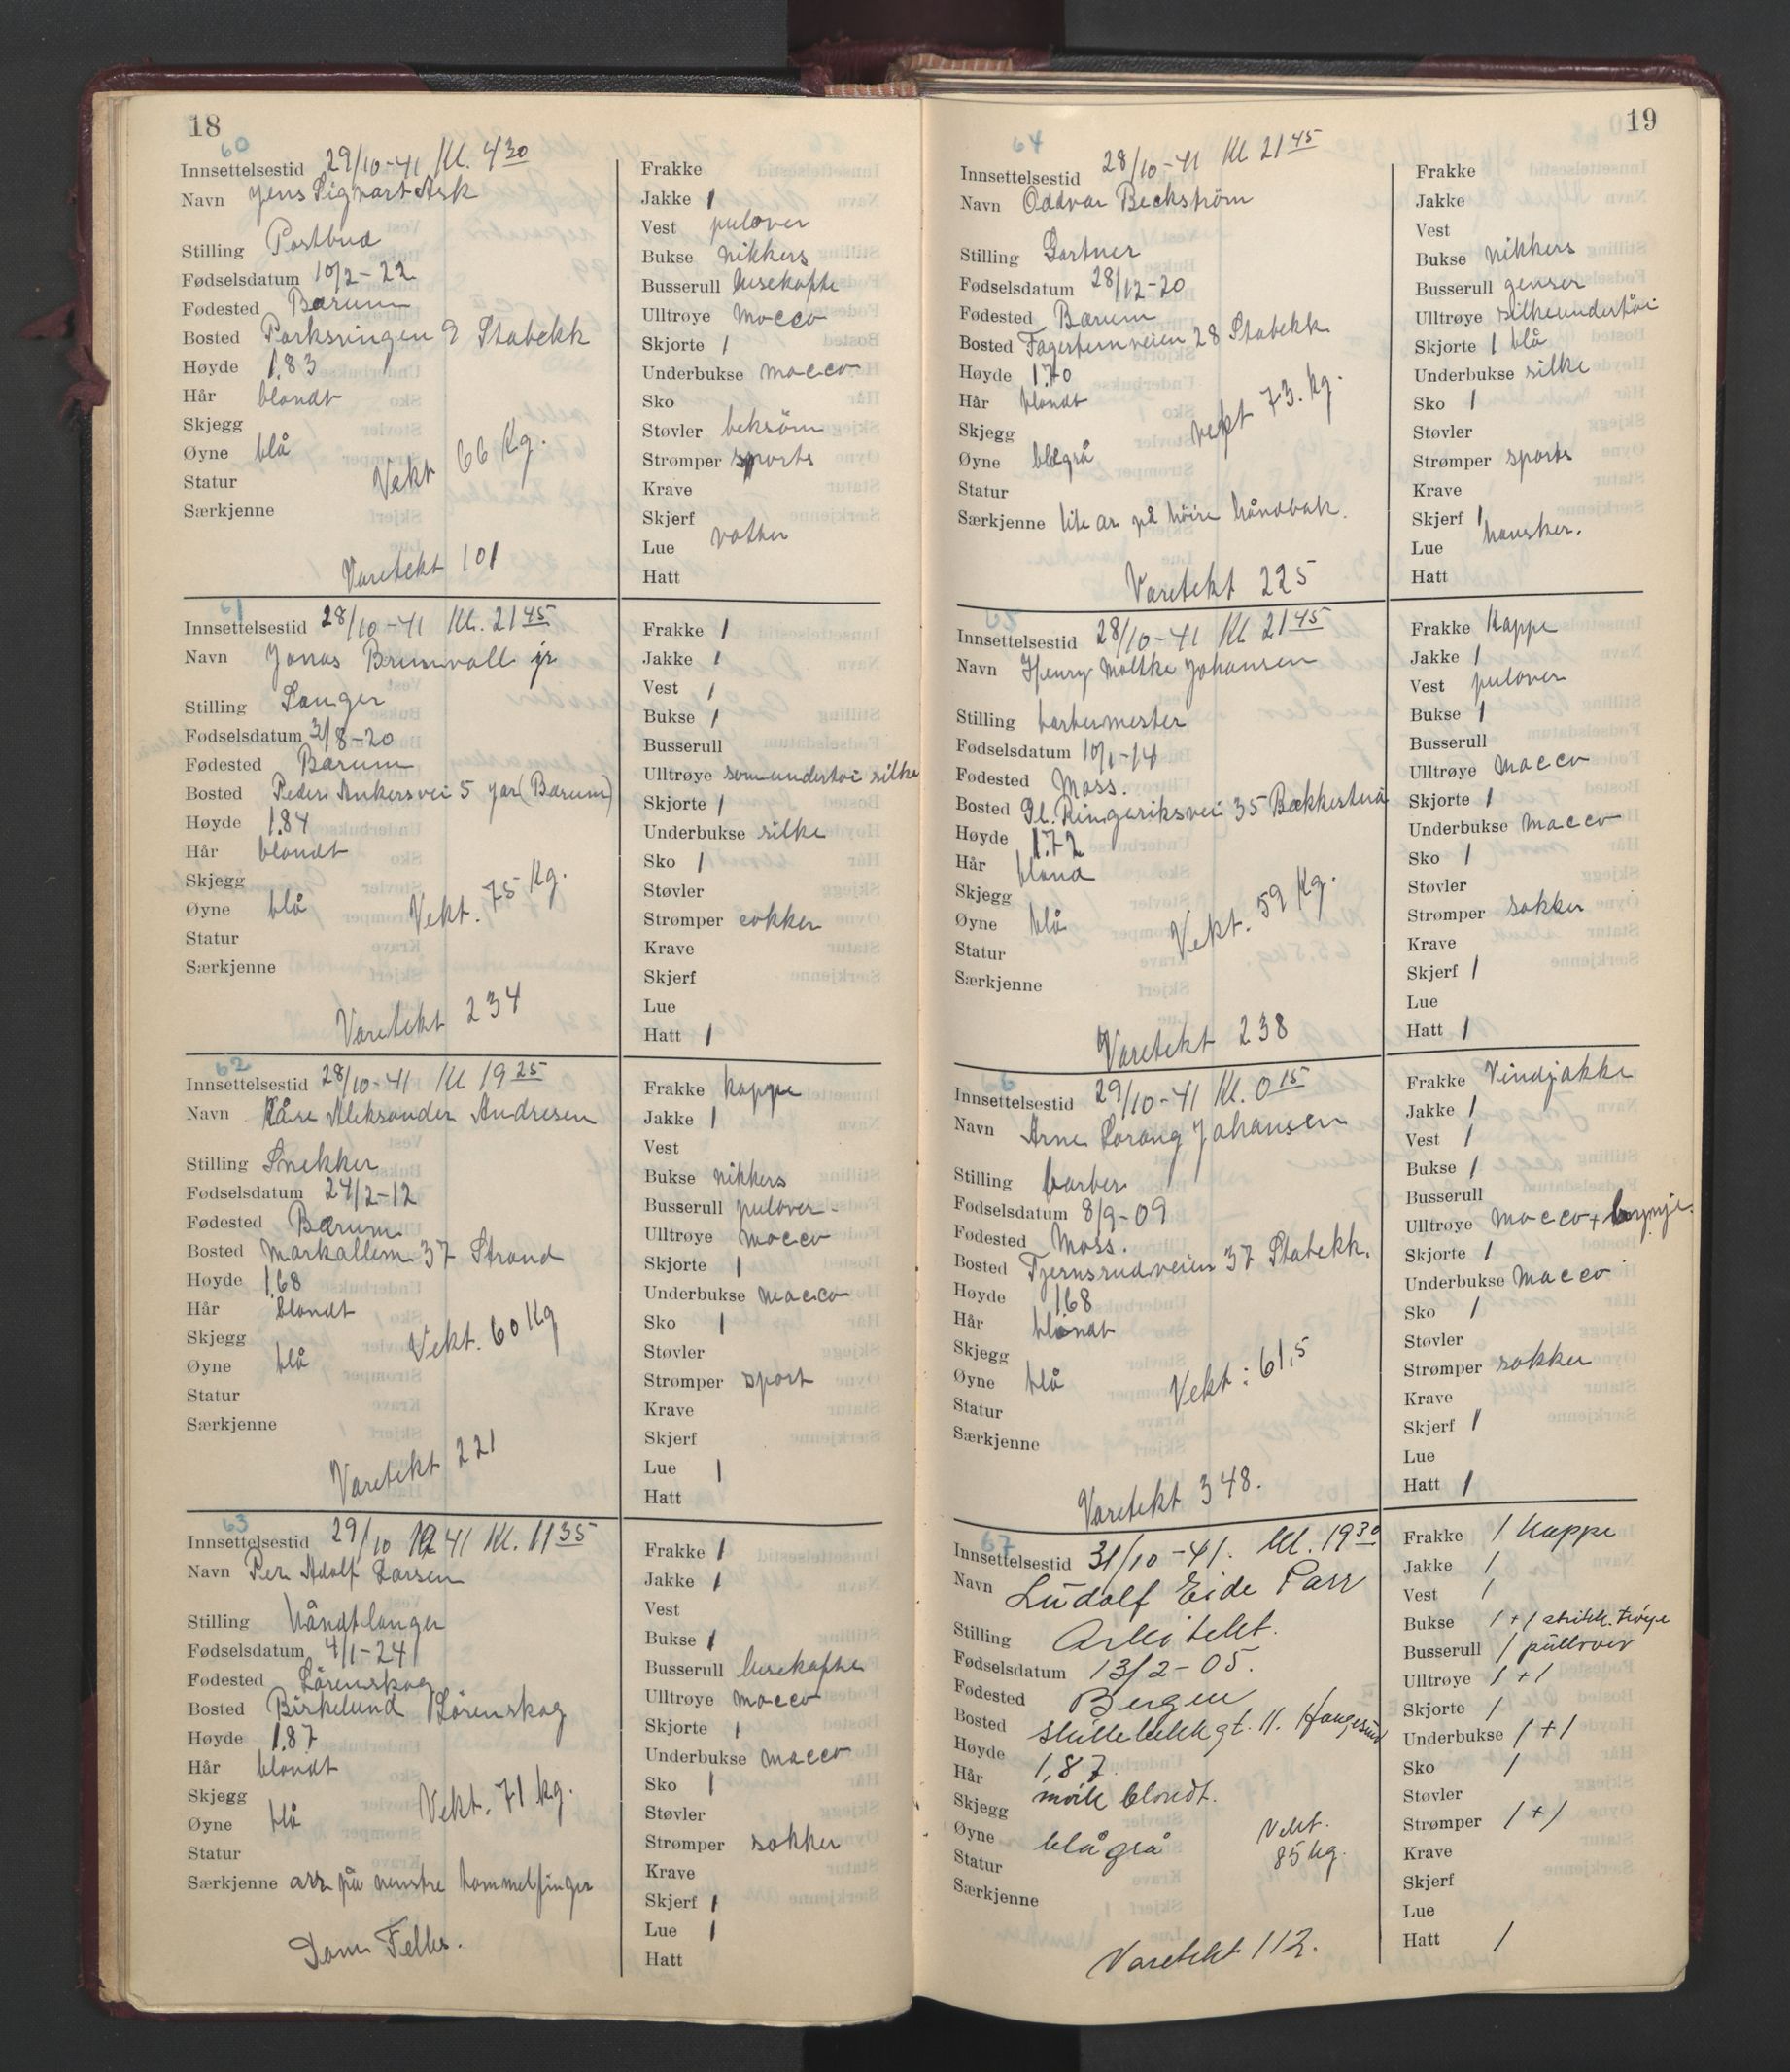 18
60
Innsettelsestid 29/10-41 Kl. 4 30
Navn Jens Sigvart Ask
Stilling Postbud
Fødselsdatum 10/2-22
Fødested Bærum
Bosted Parksvingen 9 Stabekk
Høyde 1.83
Hår blondt
Skjegg
Øyne blå
Vekt 66 Kg.
Statur
Særkjenne
Varetekt 101
Frakke
Jakke 1
Vest pulover
Bukse nikkers
Busserull lusekofte
Ulltrøye Macco
Skjorte 1
Underbukse macco
Sko
Støvler beksöm
Strømper sports
Krave
Skjerf
Lue votter
Hatt
61
Innsettelsestid 28/10-41 Kl. 21 45
Navn Jonas Brunvoll jr
Stilling Sanger
Fødselsdatum 3/8-20
Fødested Bærum
Bosted Peder Ankersvei 5 Jar (Bærum)
Høyde 1.84
Hår blondt
Skjegg
Øyne blå
Vekt. 75 Kg.
Statur
Særkjenne
Varetekt 234
Frakke 1
Jakke 1
Vest 1
Bukse 1
Busserull
Ulltrøye som undertøi silke
Skjorte 1
Underbukse silke
Sko 1
Støvler
Strømper cokker
Krave
Skjerf
Lue
Hatt 1
62
Innsettelsestid 28/10-41 Kl 19 25
Navn Kåre Aleksander Andresen
Stilling Snekker
Fødselsdatum 24/2-12
Fødested Bærum
Bosted Markalleen 37 Strand
Høyde 1.68
Hår blondt
Skjegg
Øyne blå
Vekt. 60 Kg
Statur
Særkjenne
Varetekt 221
Frakke kappe
Jakke 1
Vest
Bukse nikkers
Busserull pulover
Ulltrøye macco
Skjorte 1
Underbukse macco
Sko 1
Støvler
Strømper sport
Krave
Skjerf
Lue 1
Hatt
63
Innsettelsestid 29/10 41 Kl. 11 35
Navn Per Adolf Larsen
Stilling håndtlanger
Fødselsdatum 4/1-24
Fødested Lörenskog
Bosted Birkelund Lörenskog
Høyde 1.87
Hår blondt
Skjegg
Øyne blå
Vekt. 71 kg.
Statur
Særkjenne arr på venstre tommelfinger
Dom Felles.
Frakke 1
Jakke 1
Vest
Bukse 1
Busserull lusekofte
Ulltrøye macco
Skjorte 1
Underbukse macco
Sko 1
Støvler
Strømper sokker
Krave
Skjerf 1
Lue 1
Hatt
19
64
Innsettelsestid 28/10-41 Kl 21 45
Navn Oddvar Beckström
Stilling Gartner
Fødselsdatum 28/12-20
Fødested Bærum
Bosted Fagerturnveien 28 Stabekk
Høyde 1.70
Hår blondt
Skjegg
Øyne blågrå
vekt 73. Kg.
Statur
Særkjenne lite ar på höire håndbak.
Varetekt 225
Frakke
Jakke
Vest
Bukse nikkers
Busserull genser
Ulltrøye silkeundertøi
Skjorte 1 blå
Underbukse silke
Sko 1
Støvler
Strømper sports
Krave
Skjerf 1
Lue hansker.
Hatt
65
Innsettelsestid 28/10-41 Kl 21 45
Navn Henry Moltke Johansen
Stilling barbermester
Fødselsdatum 10/1-14
Fødested Moss.
Bosted Gl. Ringeriksvei 35 Bekkestua
Høyde 1.72
Hår blond
Skjegg
Øyne blå
Vekt. 59 Kg.
Statur
Særkjenne
Varetekt 238
Frakke Kappe
Jakke 1
Vest pulover
Bukse 1
Busserull
Ulltrøye macco
Skjorte 1
Underbukse macco
Sko 1
Støvler
Strømper sokker
Krave
Skjerf 1
Lue
Hatt 1
66
Innsettelsestid 29/10-41 Kl. 0 15
Navn Arne Sorang Johansen
Stilling barber
Fødselsdatum 8/9-09
Fødested Moss.
Bosted Tjernsrudveien 37 Stabekk.
Høyde 1.68
Hår blondt
Skjegg
Øyne blå
Vekt: 61,5
Statur
Særkjenne
Varetekt 348.
Frakke Vindjakke
Jakke 1
Vest 1
Bukse 1
Busserull
Ulltrøye macco + brynje.
Skjorte 1
Underbukse macco
Sko 1
Støvler
Strømper sokker
Krave
Skjerf 1
Lue
Hatt 1
67
Innsettelsestid 31/10-41. Kl. 19 30
Navn Ludolf Eide Parr
Stilling Arkitekt.
Fødselsdatum 13/2-05.
Fødested Bergen
Bosted Skillebekkgt. 11. Haugesund
Høyde 1,87
Hår mörk blondt.
Skjegg
Øyne blågrå
Vekt. 85 kg.
Statur
Særkjenne
Varetekt 112.
Frakke 1 Kappe
Jakke 1
Vest 1
Bukse 1 + 1 strikk. trøye
Busserull 1 pullover
Ulltrøye 1 + 1
Skjorte 1
Underbukse 1 + 1
Sko 1
Støvler
Strømper 1 + 1
Krave
Skjerf
Lue
Hatt 1